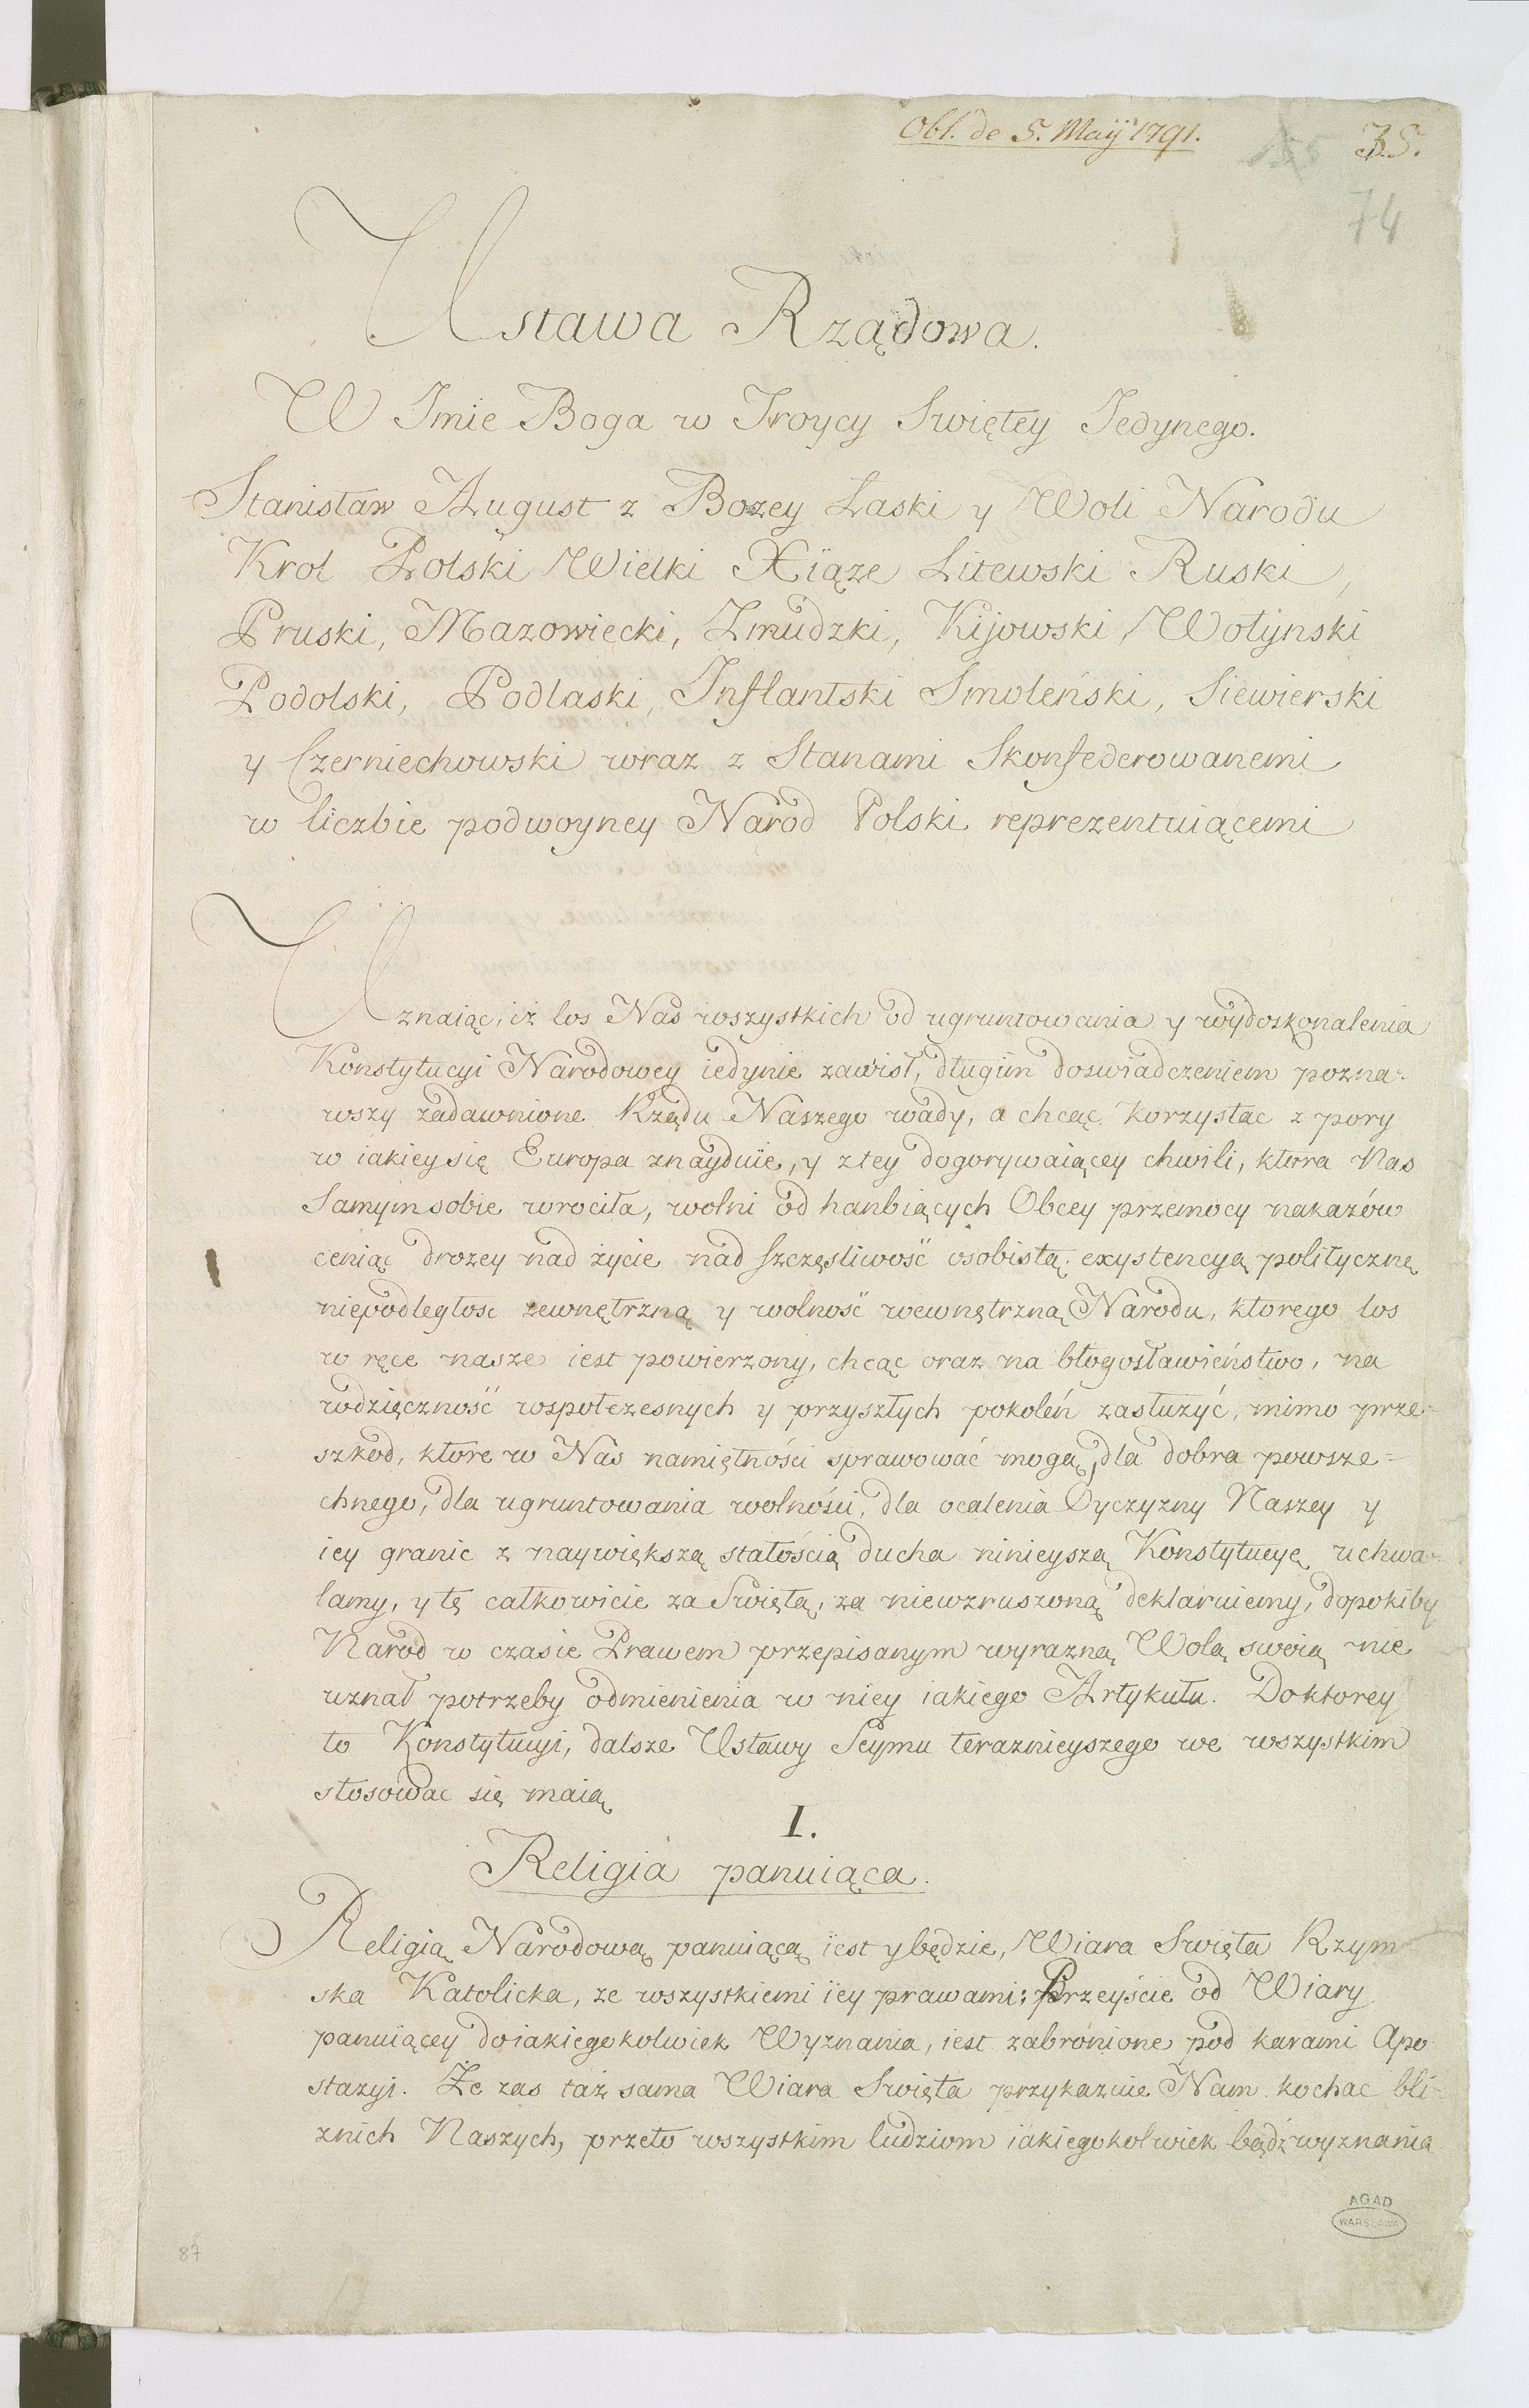 Obl. de 5. Maÿ 1791.
35.
74
Ustawa Rządowa.
W Imie Boga w Troycy Swiętey Jedynego.
Stanisław August z Bozey Łaski y Woli Narodu
Krol Polski Wielki Xiąze Litewski Ruski,
Pruski, Mazowiecki, Zmudzki, Kijowski, Wołynski
Podolski, Podlaski, Inflantski Smoleński, Siewierski
y Czerniechowski wraz z Stanami Skonfederowanemi
w liczbie podwoyney Narod Polski reprezentuiącemi
Uznaiąc, iż los Nas wszystkich od ugruntowania y wydoskonalenia
Konstytucyi Narodowey iedynie zawisł, długim doswiadczeniem pozna-
wszy zadawnione Rządu Naszego wady, a chcąc korzystac z pory
w iakiey się Europa znayduie, y z tey dogorywaiącey chwili, ktora Nas
Samym sobie wrociła, wolni od hanbiących Obcey przemocy nakazów
ceniąc drozey nad życie nad szczęsliwość osobistą, exystencyą polityczną
niepodległosc zewnętrzną y wolność wewnętrzną Narodu, ktorego los
w ręce nasze iest powierzony, chcąc oraz na błogosławieństwo, na
wdzięczność wspołczesnych y przyszłych pokoleń zasłużyć, mimo prze-
szkod, ktore w Nas namiętności sprawować mogą, dla dobra powsze=
chnego, dla ugruntowania wolności, dla ocalenia Oyczyzny Naszey y
iey granic z naywiększą stałością ducha ninieyszą Konstytucyę uchwa-
lamy, y tę całkowicie za Swiętą, za niewzruszoną deklaruiemy, dopokiby
Narod w czasie Prawem przepisanym wyrazną Wolą swoią nie
uznał potrzeby odmienienia w niey iakiego Artykułu. Do ktorey
to Konstytucyi, dalsze Ustawy Seymu teraznieyszego we wszystkim
stosowac się maią
I.
Religia panuiąca.
Religią Narodową panuiącą iest y będzie, Wiara Swięta Rzym
ska Katolicka, ze wszystkiemi iey prawami; Przeyście od Wiary
panuiącey do iakiegokolwiek Wyznania, iest zabronione pod karami Apo
stazyi. Że zas taż sama Wiara Swięta przykazuie Nam kochac bli-
znich Naszych, przeto wszystkim ludziom iakiegokolwiek bądź wyznania
AGAD
WARSZAWA
87